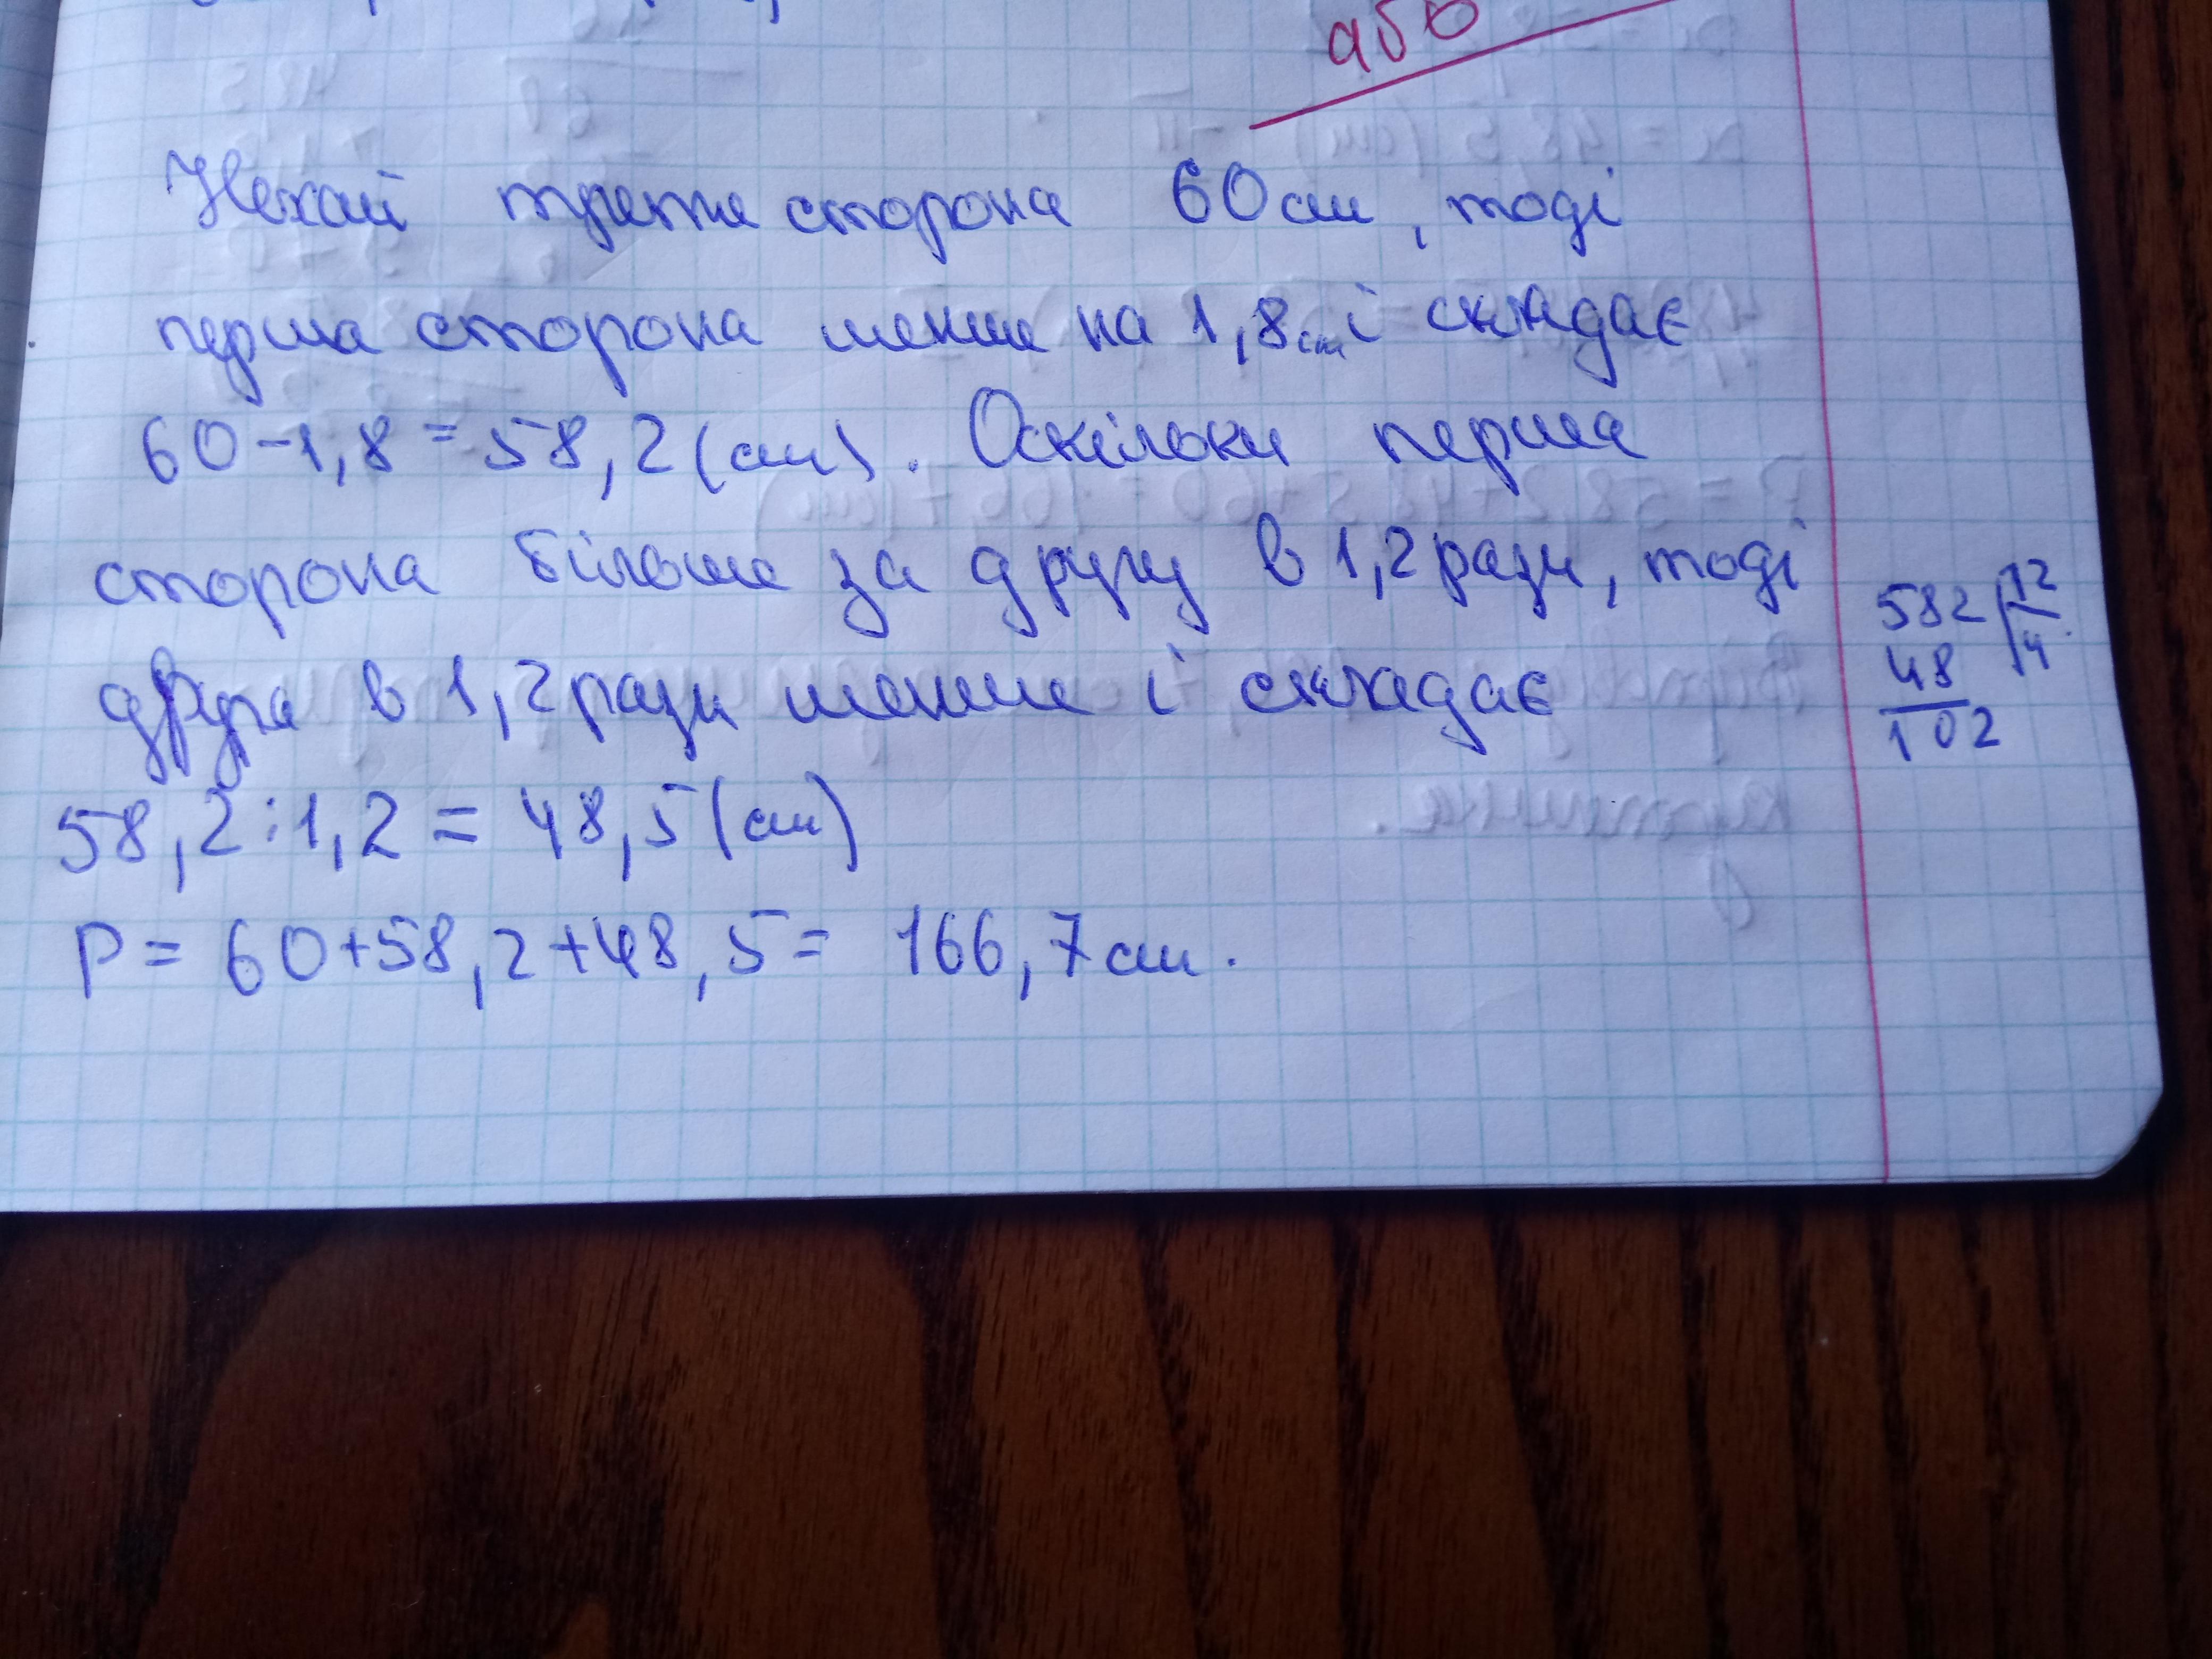 або
Нехай третя сторона 60 см, тоді
перша сторона менше на 1,8 см і складає
60-1,8=58,2(см). Оскільки перша
сторона більше за другу в 1,2 рази, тоді
друга в 1,2 рази менше і складає
58,2:1,2=48,5(см)
P=60+58,2+48,5=166,7 см.
582 12
48 4
102